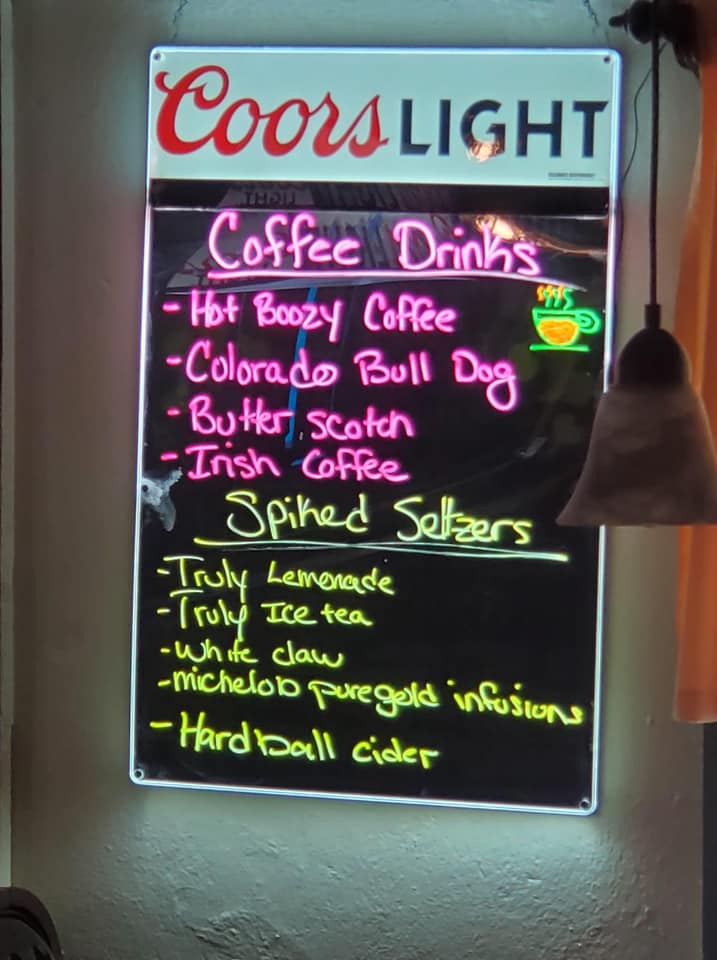 Coors LIGHT
Coffee Drinks
- Hot Boozy Coffee
- Colorado Bull Dog
- Butter scotch
- Irish Coffee
Spiked Seltzers
- Truly Lemonade
- Truly Ice tea
- White claw
- michelob pure gold infusions
- Hardball cider